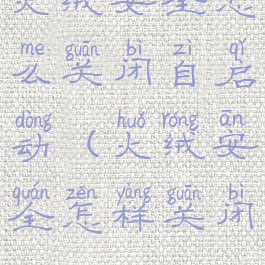 火绒安全怎
me guān bì zì qǐ
么关闭自启
dòng huǒ róng ān
动（火绒安
quán zěn yàng guān bì
全怎样关闭